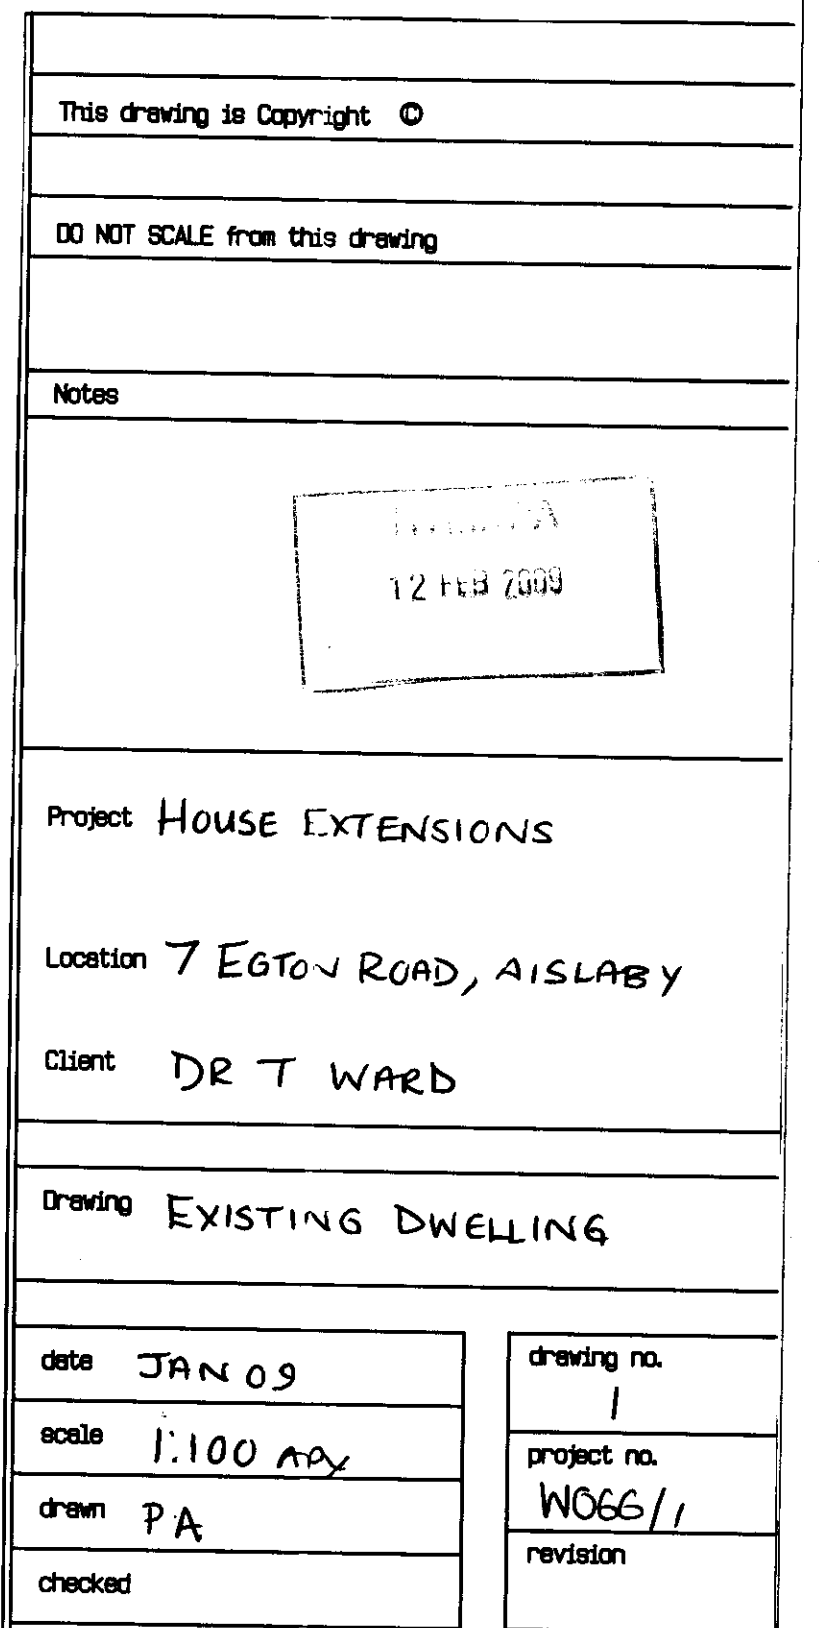 This drawing is Copyright ©
DO NOT SCALE from this drawing
Notes
12 FEB 2009
Project HOUSE EXTENSIONS
Location 7 EGTON ROAD, AISLABY
Client DR T WARD
Drawing EXISTING DWELLING
date JAN 09
scale 1:100 APX
drawn PA
checked
drawing no.
1
project no.
W066/1
revision